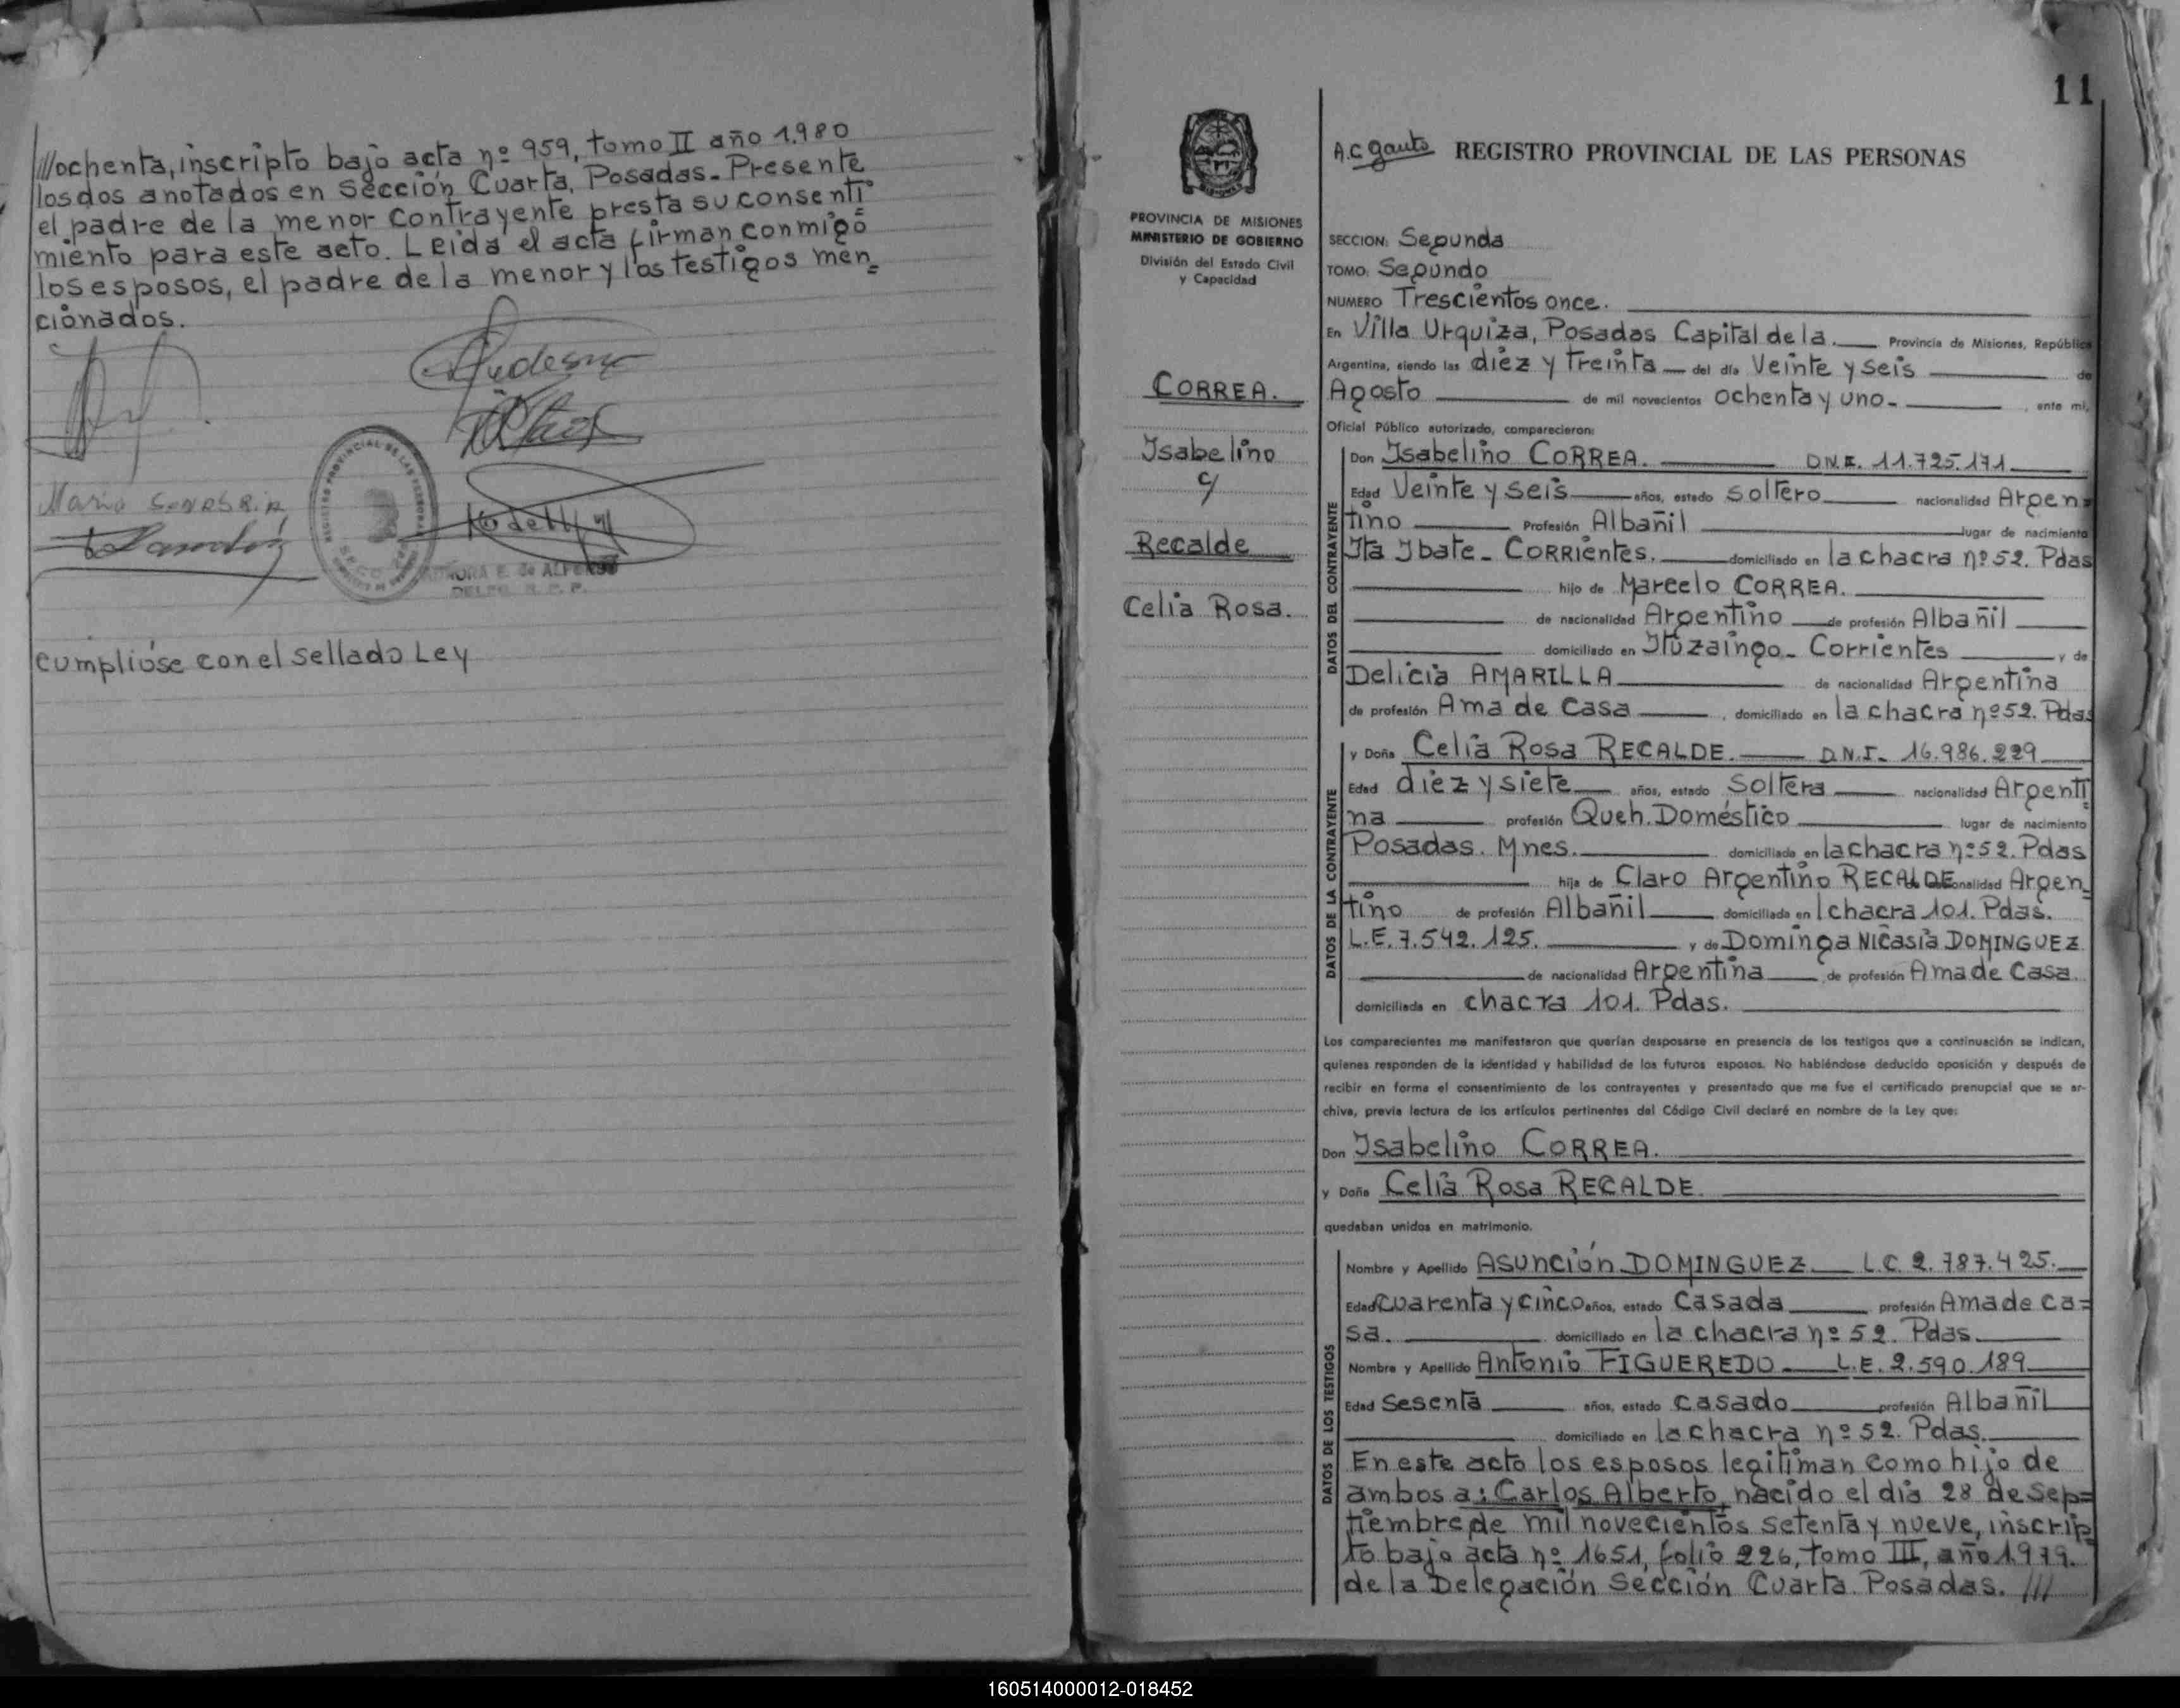 ///ochenta, inscripto bajo acta nº 959, tomo II año 1.980
los dos anotados en Sección Cuarta, Posadas. Presente
el padre de la menor contrayente presta su consenti=
miento para este acto. Leida el acta firman conmigo
los esposos, el padre de la menor y los testigos men=
cionados.
REGISTRO PROVINCIAL DE LAS PERSONAS
NORA E. de ALFONSO
Cumplióse con el sellado Ley
11
A.C Gauto REGISTRO PROVINCIAL DE LAS PERSONAS
PROVINCIA DE MISIONES
MINISTERIO DE GOBIERNO
División del Estado Civil
y Capacidad
CORREA.
Isabelino
c/
Recalde
Celia Rosa.
SECCION: Segunda
TOMO: Segundo
NUMERO Trescientos once.
En Villa Urquiza, Posadas Capital de la. Provincia de Misiones, República
Argentina, siendo las diez y treinta del día Veinte y seis de
Agosto de mil novecientos ochenta y uno. , ante mi,
Oficial Público autorizado, comparecieron:
DATOS DEL CONTRAYENTE
Don Isabelino CORREA. D.N.I. 11.725.171
Edad Veinte y seis años, estado soltero nacionalidad Argen=
tino Profesión Albañil lugar de nacimiento
Ita Ibate - CORRIENTES. domiciliado en la chacra nº 52. Pdas
hijo de Marcelo CORREA.
de nacionalidad Argentino de profesión Albañil
domiciliado en Ituzaingo - Corrientes y de
Delicia AMARILLA de nacionalidad Argentina
de profesión Ama de Casa , domiciliado en la chacra nº 52. Pdas
DATOS DE LA CONTRAYENTE
y Doña Celia Rosa RECALDE. D.N.I. 16.986.229
Edad diez y siete años, estado Soltera nacionalidad Argenti=
na profesión Queh. Doméstico lugar de nacimiento
Posadas. Mnes. domiciliada en la chacra nº 52. Pdas
hija de Claro Argentino RECALDE de nacionalidad Argen=
tino de profesión Albañil domiciliada en chacra 101. Pdas.
L.E. 7.542.125. y de Dominga Nicasia DOMINGUEZ
de nacionalidad Argentina de profesión Ama de Casa
domiciliada en chacra 101. Pdas.
Los comparecientes me manifestaron que querían desposarse en presencia de los testigos que a continuación se indican,
quienes responden de la identidad y habilidad de los futuros esposos. No habiéndose deducido oposición y después de
recibir en forma el consentimiento de los contrayentes y presentado que me fue el certificado prenupcial que se ar-
chiva, previa lectura de los artículos pertinentes del Código Civil declaré en nombre de la Ley que:
Don Isabelino CORREA.
y Doña Celia Rosa RECALDE.
quedaban unidos en matrimonio.
DATOS DE LOS TESTIGOS
Nombre y Apellido Asunción DOMINGUEZ L.C. 2.787.425.
Edad Cuarenta y cinco años, estado Casada profesión Ama de ca=
sa. domiciliado en la chacra nº 52. Pdas.
Nombre y Apellido Antonio FIGUEREDO L.E. 2.590.189
Edad Sesenta años, estado Casado profesión Albañil
domiciliado en la chacra nº 52. Pdas.
En este acto los esposos legitiman como hijo de
ambos a: Carlos Alberto, nacido el dia 28 de Sep=
tiembre de mil novecientos setenta y nueve, inscrip=
to bajo acta nº 1651, folio 226, tomo III, año 1979.
de la Delegación Sección Cuarta. Posadas. ///
160514000012-018452